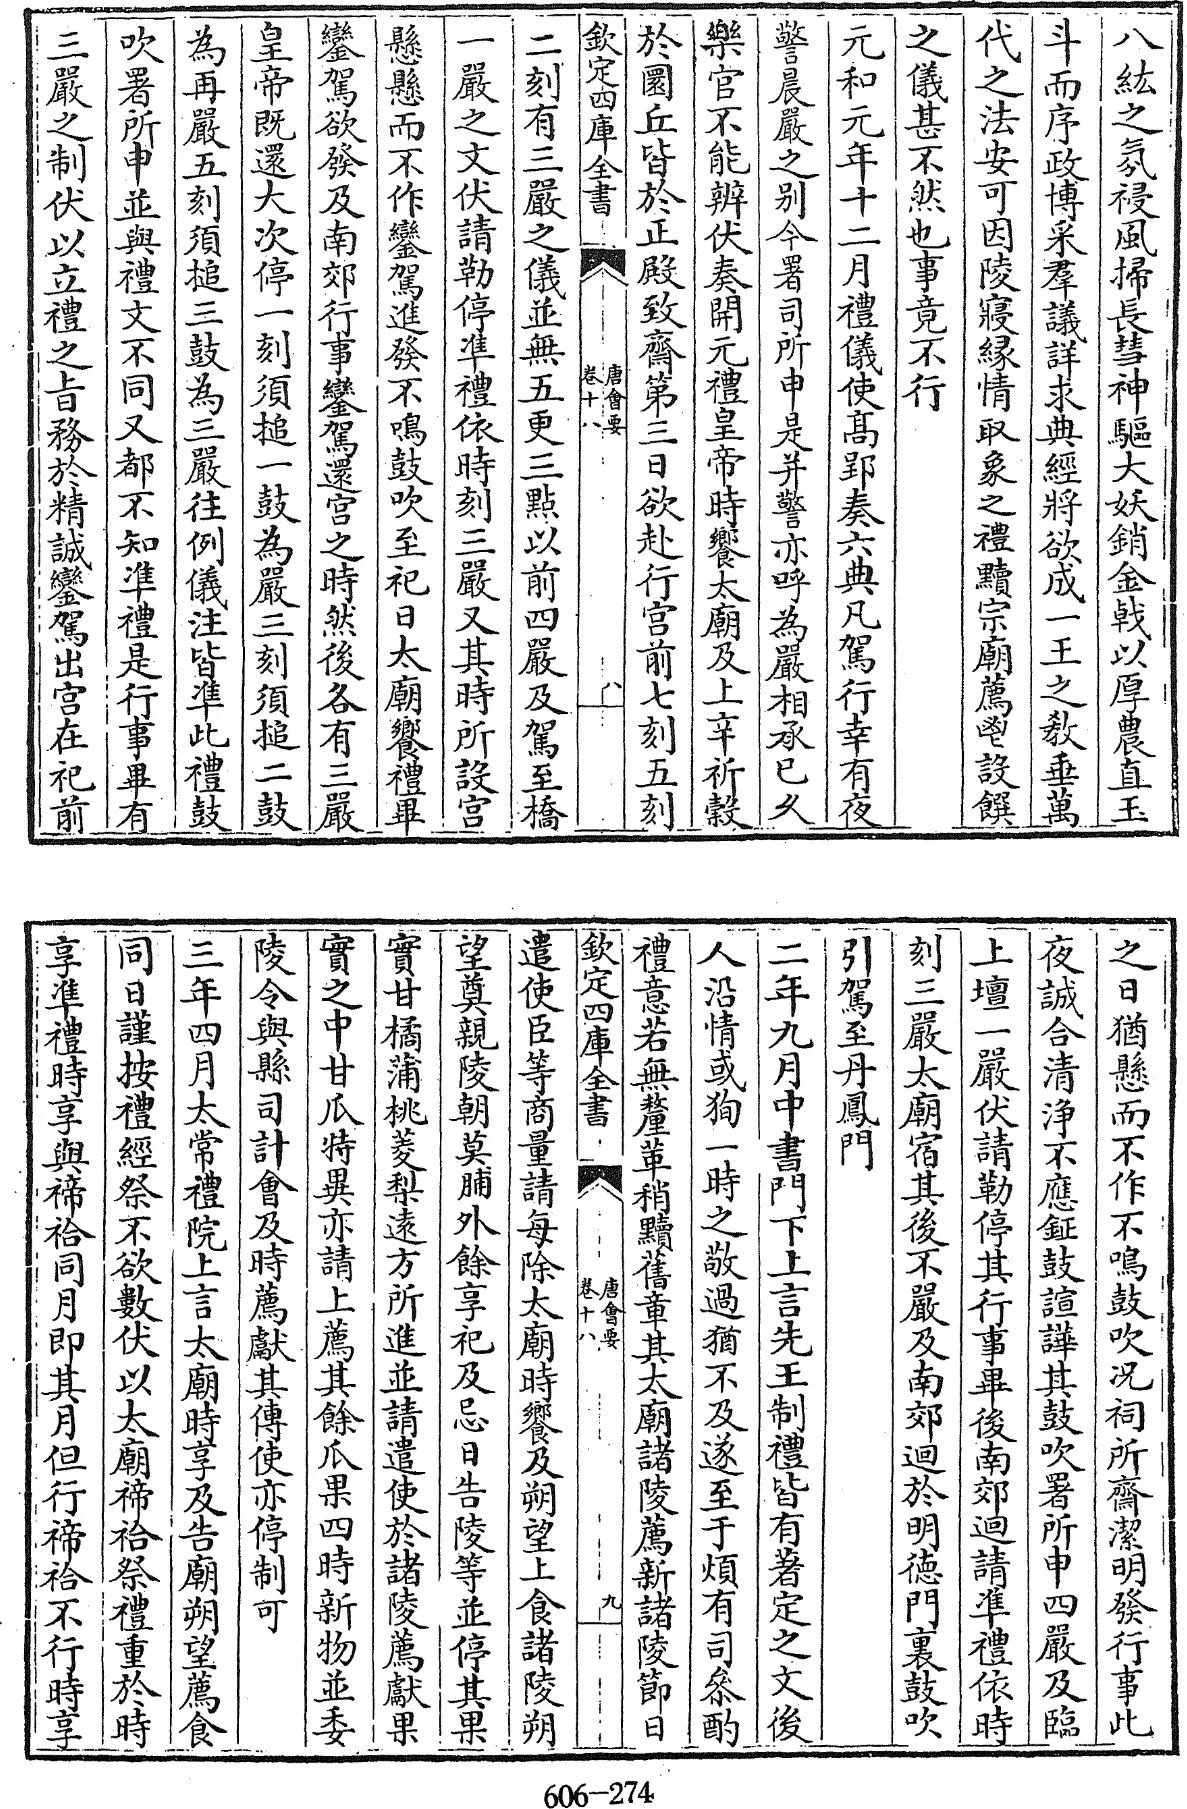 八紘之氛祲風掃長彗神驅大妖銷金戟以厚農直玉
斗而序政博采羣議詳求典經將欲成一王之敎垂萬
代之法安可因陵寢縁情取象之禮黷宗廟薦鬯設饌
之儀甚不然也事竟不行
元和元年十二月禮儀使髙郢奏六典凡駕行幸有夜
警晨嚴之别今署司所申是并警亦呼為嚴相承已乆
樂官不能辨伏奏開元禮皇帝時饗太廟及上辛祈穀
於圜丘皆於正殿致齋第三日欲赴行宫前七刻五刻
欽定四庫全書
唐會要
卷十八
八
二刻有三嚴之儀並無五更三點以前四嚴及駕至橋
一嚴之文伏請勒停準禮依時刻三嚴又其時所設宫
懸懸而不作鑾駕進發不鳴鼓吹至祀日太廟饗禮畢
鑾駕欲發及南郊行事鑾駕還宫之時然後各有三嚴
皇帝既還大次停一刻須搥一鼓為嚴三刻須搥二鼓
為再嚴五刻須搥三鼓為三嚴往例儀注皆準此禮鼓
吹署所申並與禮文不同又都不知準禮是行事畢有
三嚴之制伏以立禮之㫖務於精誠鑾駕出宫在祀前
之日猶懸而不作不鳴鼓吹况祠所齋潔明發行事此
夜誠合清淨不應鉦鼓諠譁其鼓吹署所申四嚴及臨
上壇一嚴伏請勒停其行事畢後南郊迴請準禮依時
刻三嚴太廟宿其後不嚴及南郊迴於明德門裏鼓吹
引駕至丹鳳門
二年九月中書門下上言先王制禮皆有著定之文後
人沿情或狥一時之敬過猶不及遂至于煩有司叅酌
禮意若無釐革稍黷舊章其太廟諸陵薦新諸陵節日
欽定四庫全書
唐會要
卷十八
九
遣使臣等商量請每除太廟時饗及朔望上食諸陵朔
望奠親陵朝莫脯外餘享祀及忌日告陵等並停其果
實甘橘蒲桃菱梨遠方所進並請遣使於諸陵薦獻果
實之中甘瓜特異亦請上薦其餘瓜果四時新物並委
陵令與縣司計會及時薦獻其傳使亦停制可
三年四月太常禮院上言太廟時享及告廟朔望薦食
同日謹按禮經祭不欲數伏以太廟禘祫祭禮重於時
享準禮時享與禘祫同月即其月但行禘祫不行時享
606-274